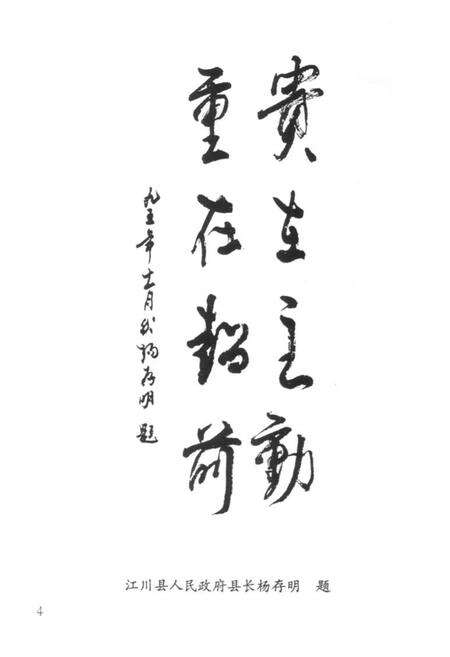 貴在主動
重在前
九五年十一月杨存明題
江川县人民政府县长杨存明 题
4